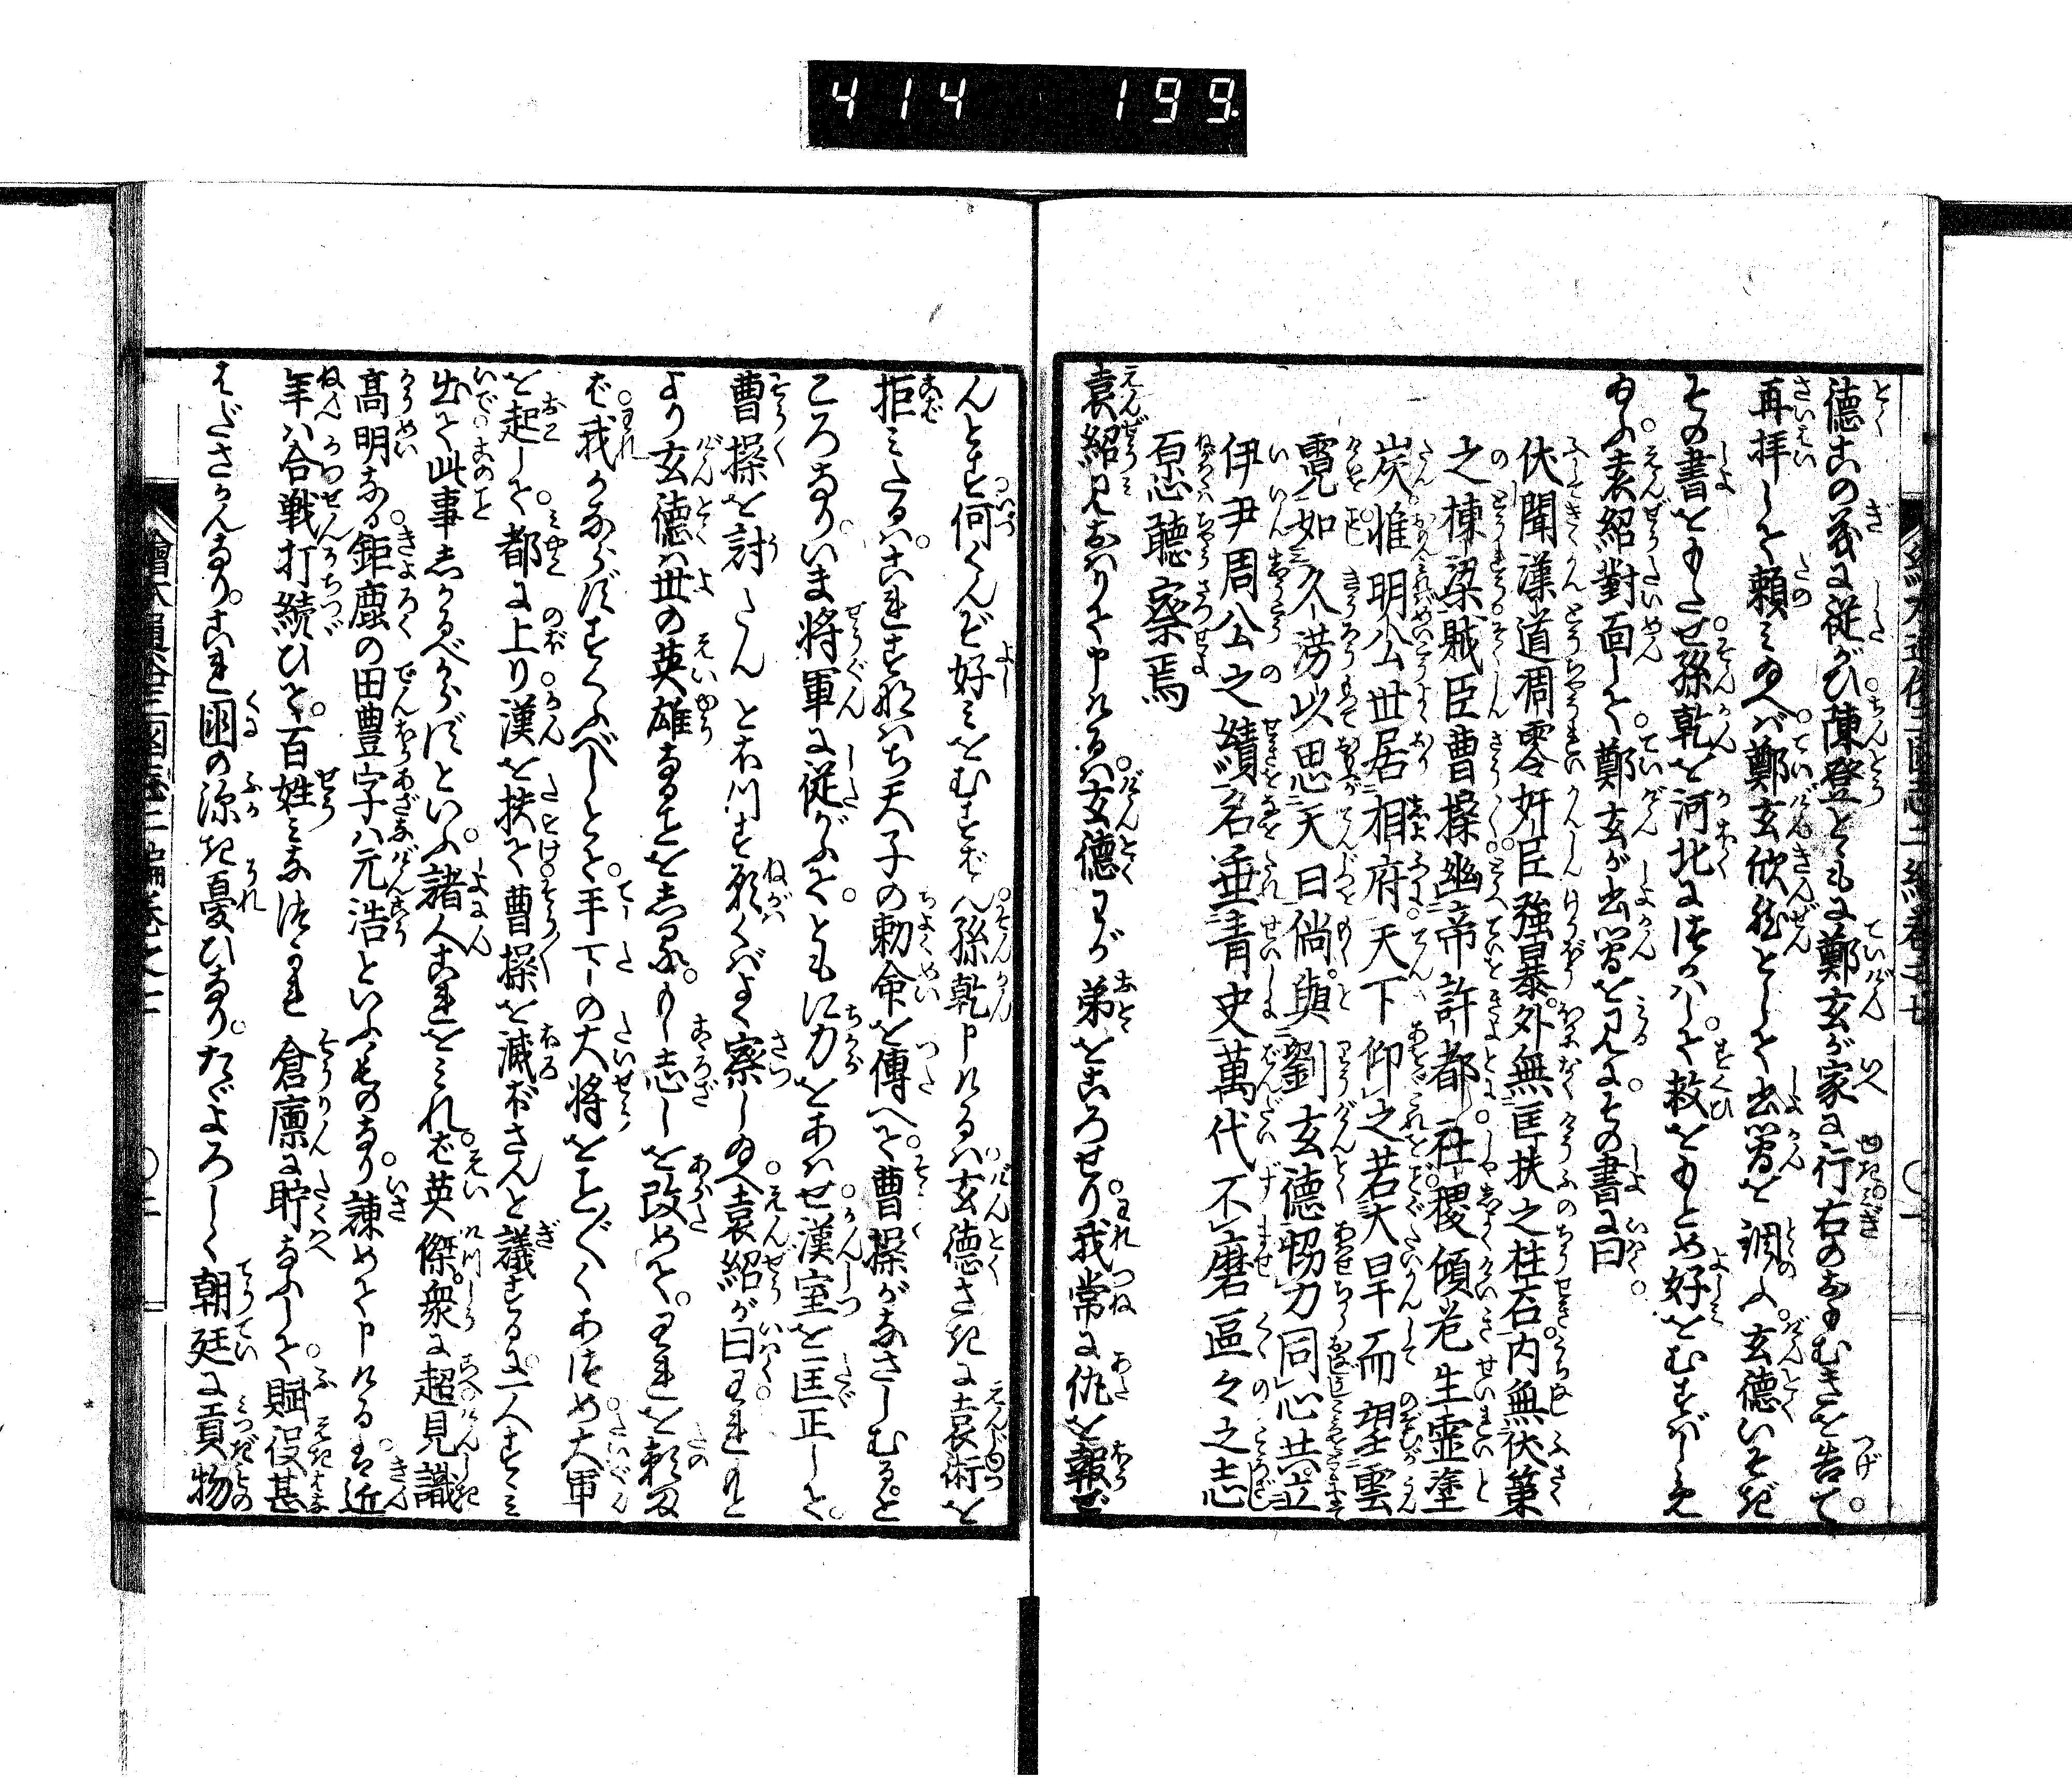 414 199
德この義に従がひ陳登とともに鄭玄が家に行右のおもむきを告て
再拝して頼みゐへば鄭玄欣然として書簡を調ふ玄德いそぎ
その書をもたせ孫乾を河北につかはして救をもとめ好をむすばしめ
ゐふ袁紹對面して鄭玄が書簡を見るにその書に曰
伏聞漢道凋零奸臣強暴外無匡扶之柱石内無伏策
之棟梁賊臣曹操幽帝許都社稷傾危生霊塗
炭惟明公世居相府天下仰之若大旱而望雲
霓如久澇以思天日倘與劉玄德恊力同心共立
伊尹周公之績名垂青史萬代不磨區々之志
原恁聽察焉
袁紹見おはりて申けるは玄德わが弟をころせり我常に仇を報ぜ
んとす何くんぞ好みをむすばん孫乾申けるは玄德さきに袁術を
拒みたるはこれすなはち天子の勅命を傳へて曹操がなさしむると
ころなりいま将軍に従がふてともに力をあはせ漢室を匡正して
曹操を討たんとおもす願くばよく察しゐへ袁紹が曰われもと
より玄德は世の英雄なることをしるゆへもし志しを改めてわれを頼ま
ば我かならずすくふべしとて手下の大将をことごとくあつめ大軍
を起して都に上り漢を扶て曹操を滅ぼさんと議するに一人すゝみ
出て此事しかるべからずといふ諸人これをみれば英傑衆に超見識
高明なる鉅鹿の田豊字は元浩といふものなり諫めて申けるは近
年は合戦打続ひて百姓みなつかれ倉廩に貯なふして賦役甚
はださかんなりこれ國の源き憂ひなりたゞよろしく朝廷に貢物